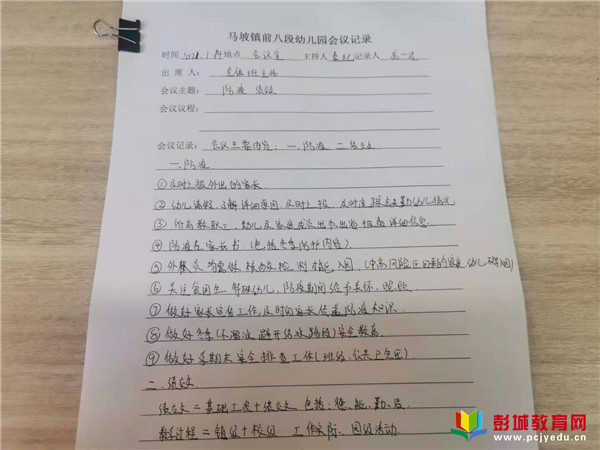 马坡镇前八段幼儿园会议记录
时间 2021.1.14 地点 会议室 主持人 记录人
出席人： 全体班主任
会议主题： 防疫 绩效
会议议程：
会议记录： 会议主要内容：一.防疫 二.绩效
一.防疫
①及时上报外出的家长
②幼儿请假，了解详细原因，及时上报，及时追踪缺勤幼儿情况
③所有教职工、幼儿及家庭成员出市出省报备详细信息
④防疫告家长书（包括冬季防护内容）
⑤外来人员 核酸检测 入园（中高风险区回来的 幼儿 入园）
⑥关注贫困生、特殊幼儿，防疫期间给予关怀、
⑦做好家长宣传工作，及时向家长传递防疫知识
⑧做好冬季（不溜冰 避开结冰路段）安全教育
⑨做好学期末安全排查工作（班级、公共卫生区）
二.绩效
绩效 = 基础工资 + 绩效 包括：德、能、勤、绩
教学过程 = 镇级 + 校级 工作实际、园级活动
彭城教育网
www.pcjyedu.cn